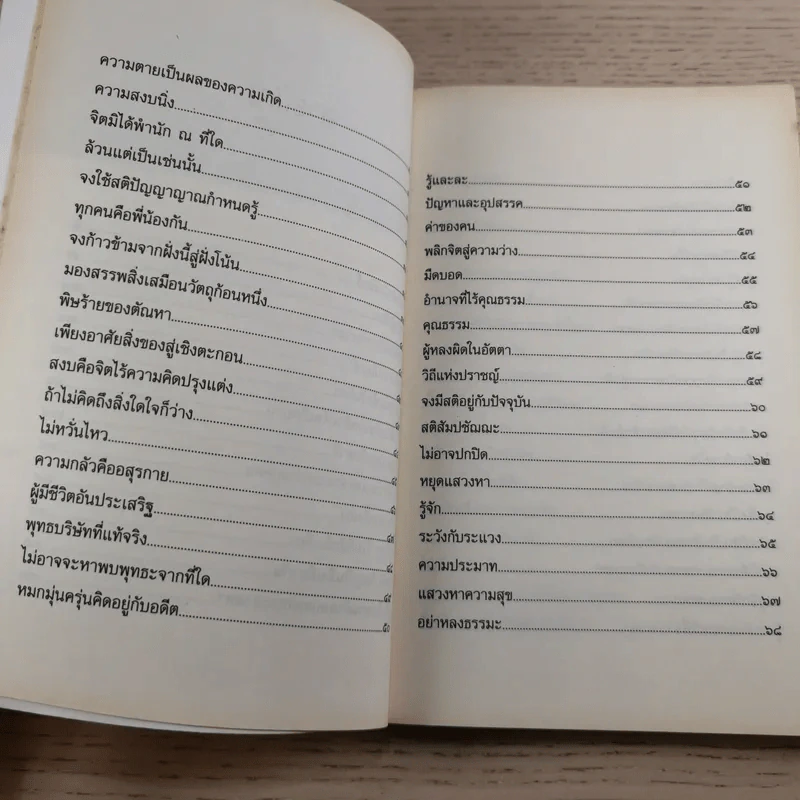 ความตายเป็นผลของความเกิด
ความสงบนิ่ง
จิตมิได้พำนัก ณ ที่ใด
ล้วนแต่เป็นเช่นนั้น
จงใช้สติปัญญาญาณกำหนดรู้
ทุกคนคือพี่น้องกัน
จงก้าวข้ามจากฝั่งนี้สู่ฝั่งโน้น
มองสรรพสิ่งเสมือนวัตถุก้อนหนึ่ง
พิษร้ายของตัณหา
เพียงอาศัยสิ่งของสู่เชิงตะกอน
สงบคือจิตไร้ความคิดปรุงแต่ง
ถ้าไม่คิดถึงสิ่งใดใจก็ว่าง
ไม่หวั่นไหว
ความกลัวคืออสุรกาย
ผู้มีชีวิตอันประเสริฐ
พุทธบริษัทที่แท้จริง
ไม่อาจจะหาพบพุทธะจากที่ใด
หมกมุ่นครุ่นคิดอยู่กับอดีต
รู้และละ ๕๑
ปัญหาและอุปสรรค ๕๒
ค่าของคน ๕๓
พลิกจิตสู่ความว่าง ๕๔
มืดบอด ๕๕
อำนาจที่ไร้คุณธรรม ๕๖
คุณธรรม ๕๗
ผู้หลงผิดในอัตตา ๕๘
วิถีแห่งปราชญ์ ๕๙
จงมีสติอยู่กับปัจจุบัน ๖๐
สติสัมปชัฌฌะ ๖๑
ไม่อาจปกปิด ๖๒
หยุดแสวงหา ๖๓
รู้จัก ๖๔
ระวังกับระแวง ๖๕
ความประมาท ๖๖
แสวงหาความสุข ๖๗
อย่าหลงธรรมะ ๖๘